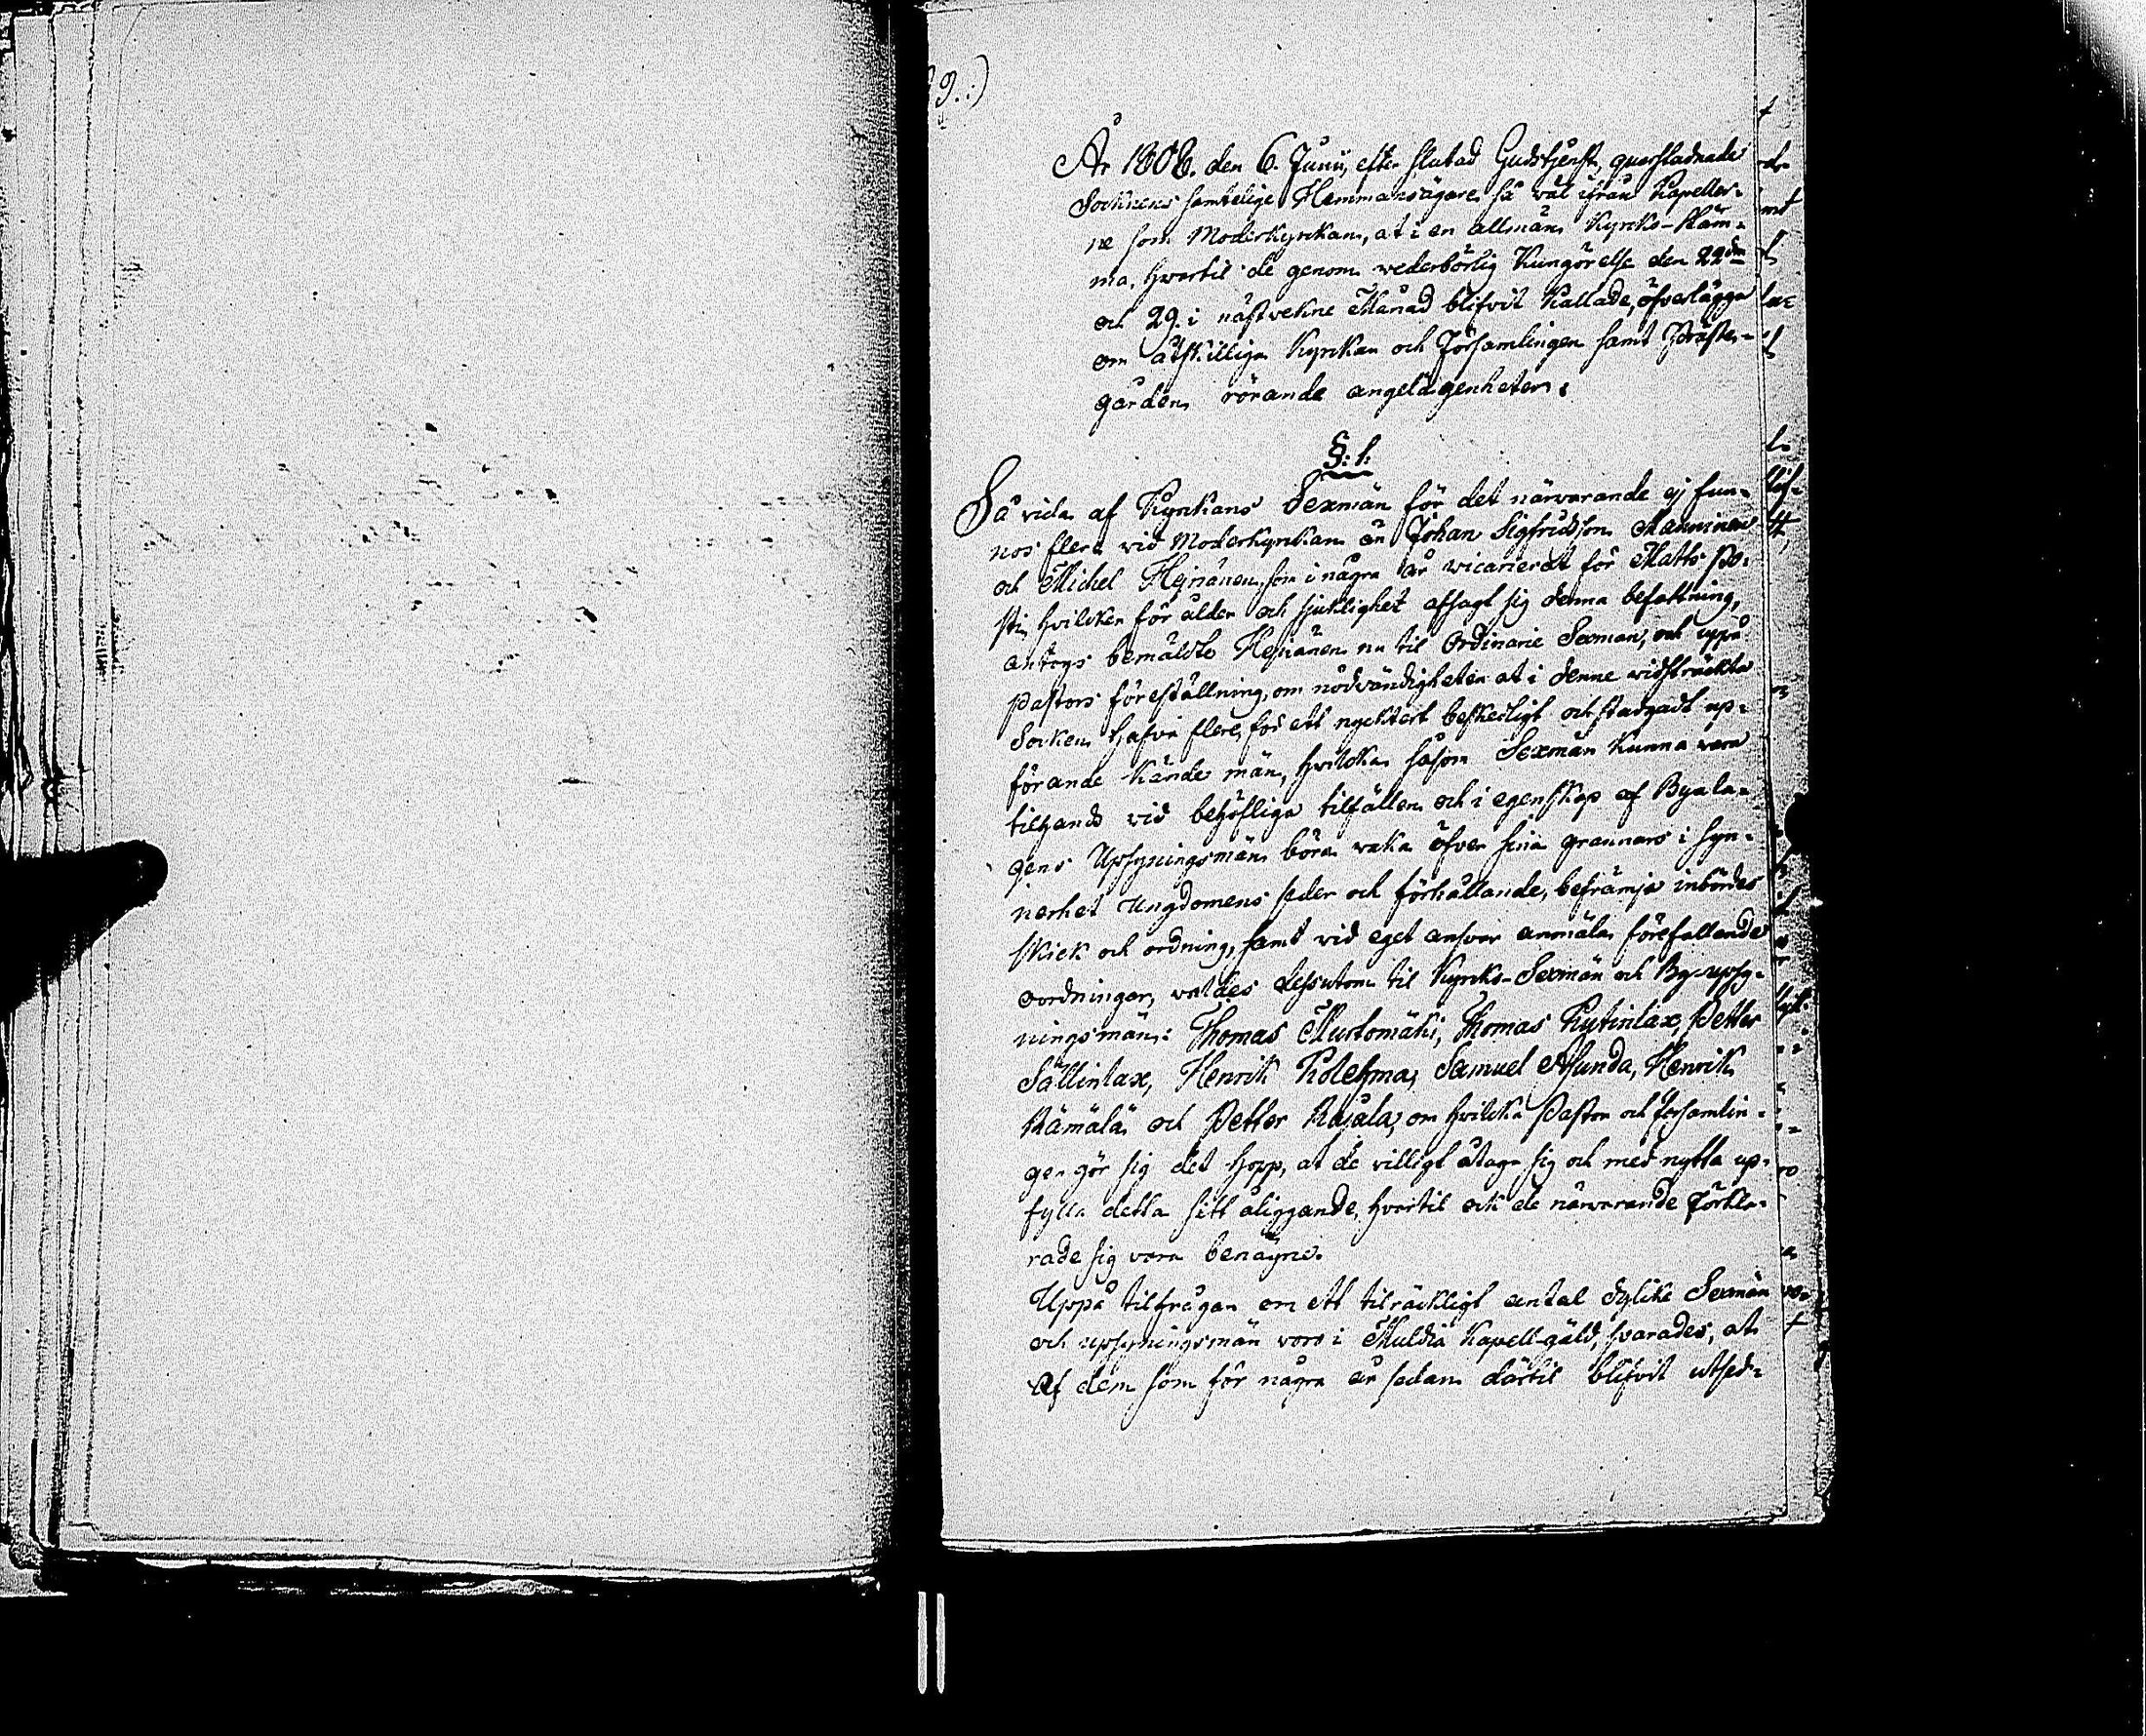 9.:)
År 1808. den 6. Junii, efter slutad Gudstjenst, quarstadnade
Socknens samtelige Hemmansägare så väl ifrån Kapeller-
ne som Moderkyrkan, at i en allmän Kyrko-Stäm-
ma, hvartil de genom vederbörlig Kungörelse den 22dn
och 29. i nästvekne Månad blifvit Kallade, öfverlägga
om åtskilliga Kyrkan och Församlingen samt Präste-
gården rörande angelägenheter.
§: 1:
Så vida af Kyrkans Sexmän för det närvarande ej fun-
nos flera vid Moderkyrkan än Johan Sigfridsson Manninen
och Michel Hejnänen, som i några år vicarierat för Matts Po-
sti, hvilcken för ålder och sjuklighet afsagt sig denna befattning,
antogs bemälde Hejnänen nu til Ordinarie Sexman, och uppå
Pastors föreställning, om nödvändigheten at i denne vidsträckta
Socken hafva flere, för ett nycktert beskedligt och stadgadt up-
förande Kände män, hvilcka såsom Sexmän Kunna vara
tilhands vid behöfliga tilfällen och i egenskap af Byala-
gens Upsyningsmän böra vaka öfver sina grannars i syn-
nerhet Ungdomens seder och förhållande, befrämja inbördes
skick och ordning, samt vid eget ansvar anmäla förefallande
oordningar, valdes dessutom til Kyrko-Sexmän och By-upsy-
ningsmän: Thomas Mustomäki, Thomas Kytinlax, Petter
Sällinlax, Henrik Kolehma, Samuel Asunda, Henrik
Kämälä och Petter Rajala, om hvilcka Pastor och Församlin-
gen gör sig det hopp, at de villigt åtaga sig och med nytta up-
fylla detta sitt åliggande, hvartil ock de närvarande förkla-
rade sig vara benägne.
Uppå tilfrågan om ett tilräckligt antal dylike Sexmän
och upsyningsmän voro i Muldia Kapell-gäld, svarades, at
af dem som för några år sedan därtil blifvit utsed-